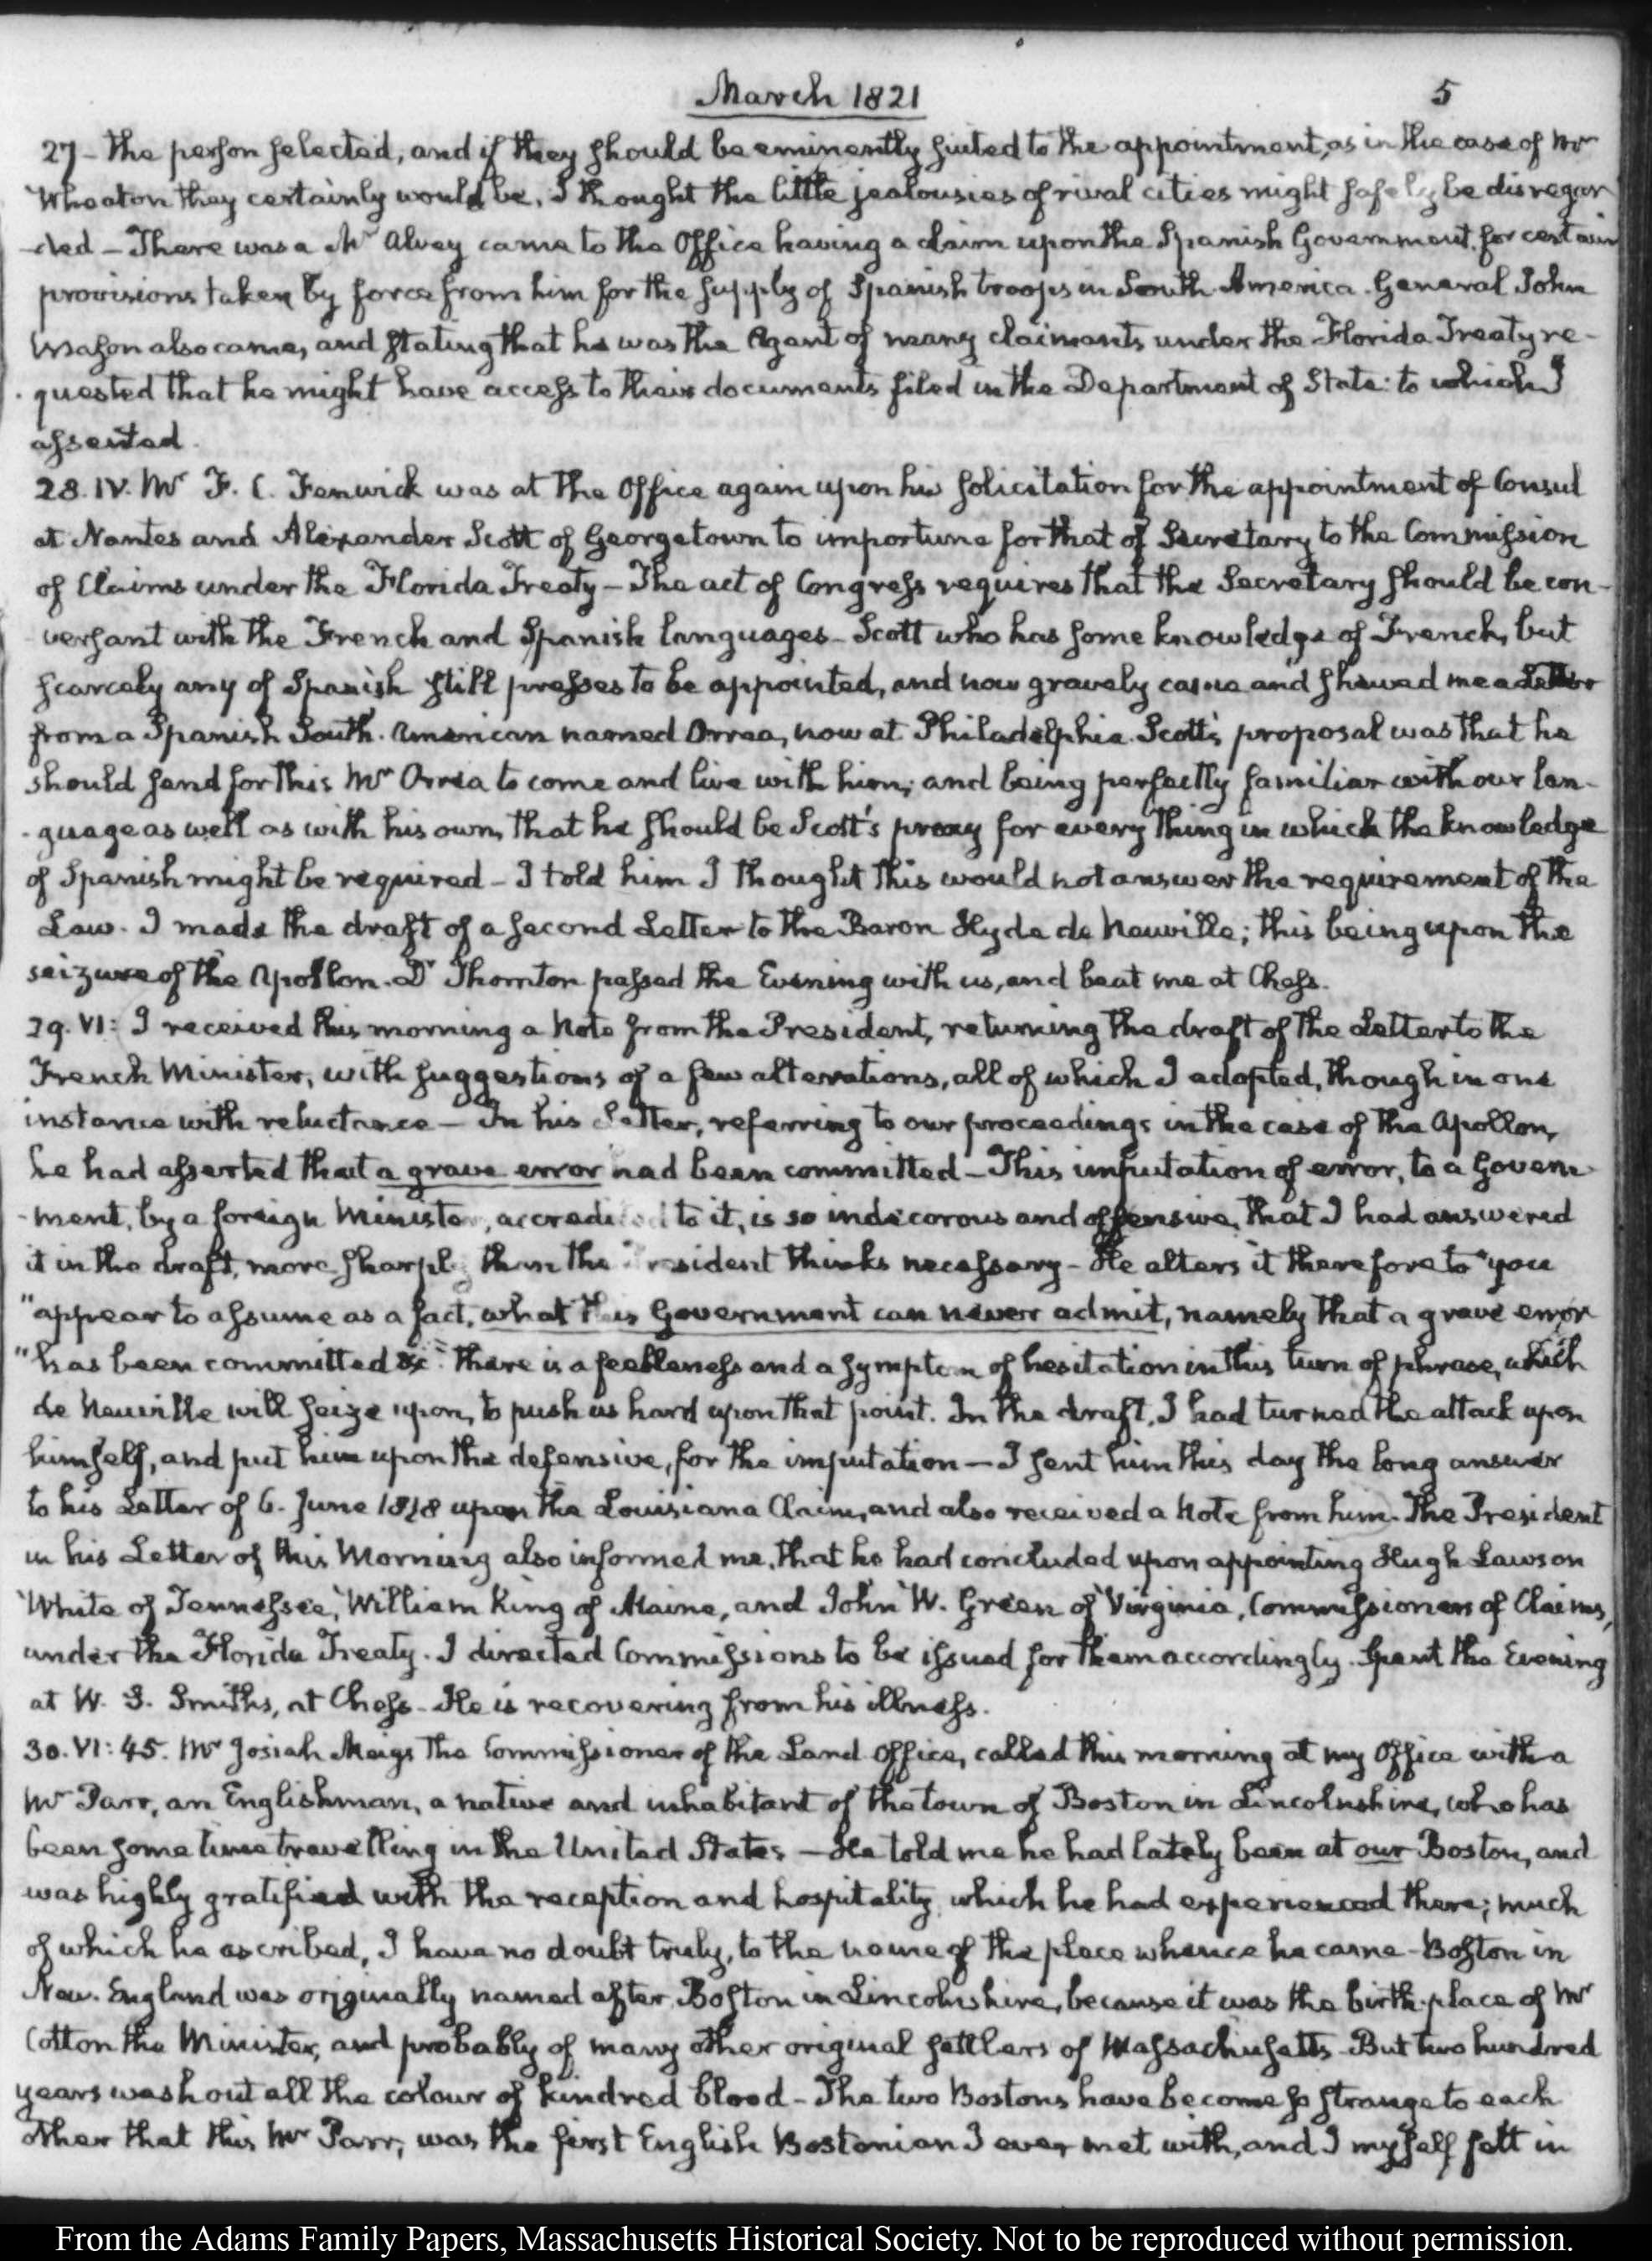 March 1821
5
27 – the person selected, and if they should be eminently suited to the appointment, as in the case of Mr
Wheaton they certainly would be, I thought the little jealousies of rival cities might safely be disregar
-ded – There was a Mr Alvey came to the Office having a claim upon the Spanish Government, for certain
provisions taken by force from him for the supply of Spanish troops in South America. General John
Mason also came, and stating that he was the Agent of many claimants under the Florida Treaty re-
-quested that he might have access to their documents filed in the Department of State: to which I
assented.
28. IV. Mr F. C. Fenwick was at the Office again upon his solicitation for the appointment of Consul
at Nantes and Alexander Scott of Georgetown to importune for that of Secretary to the Commission
of Claims under the Florida Treaty – The act of Congress requires that the Secretary should be con-
versant with the French and Spanish languages – Scott who has some knowledge of French, but
scarcely any of Spanish still presses to be appointed, and now gravely came and shewed me a Letter
from a Spanish South-American named Orrea, now at Philadelphia. Scott's proposal was that he
should send for this Mr Orrea to come and live with him; and being perfectly familiar with our lan-
-guage as well as with his own, that he should be Scott's proxy for every thing in which the knowledge
of Spanish might be required – I told him I thought this would not answer the requirement of the
Law. I made the draft of a second Letter to the Baron Hyde de Neuville; this being upon the
seizure of the Apollon. Dr Thornton passed the Evening with us, and beat me at Chess.
29. VI: I received this morning a Note from the President, returning the draft of the Letter to the
French Minister, with suggestions of a few alterations, all of which I adopted, though in one
instance with reluctance – In his Letter, referring to our proceedings in the case of the Apollon,
he had asserted that a grave error had been committed – This imputation of error, to a Govern
-ment, by a foreign Minister, accredited to it, is so indecorous and offensive, that I had answered
it in the draft, more sharply than the President thinks necessary – He alters it therefore to "you
"appear to assume as a fact, what this Government can never admit, namely that a grave error
"has been committed &c" there is a feebleness and a symptom of hesitation in this turn of phrase, which
de Neuville will seize upon, to push us hard upon that point. In the draft, I had turned the attack upon
himself, and put him upon the defensive, for the imputation – I sent him this day the long answer
to his Letter of 6. June 1818 upon the Louisiana Claim, and also received a Note from him. The President
in his Letter of this Morning also informed me, that he had concluded upon appointing Hugh Lawson
White of Tennessee, William King of Maine, and John W. Green of Virginia, Commissioners of Claims,
under the Florida Treaty. I directed Commissions to be issued for them accordingly. Spent the Evening
at W. S. Smiths, at Chess – He is recovering from his illness.
30. VI: 45. Mr Josiah Meigs the Commissioner of the Land Office, called this morning at my Office with a
Mr Parr, an Englishman, a native and inhabitant of the town of Boston in Lincolnshire, who has
been some time travelling in the United States – He told me he had lately been at our Boston, and
was highly gratified with the reception and hospitality which he had experienced there; much
of which he ascribed, I have no doubt truly, to the name of the place whence he came – Boston in
New-England was originally named after Boston in Lincolnshire, because it was the birth-place of Mr
Cotton the Minister, and probably of many other original settlers of Massachusetts – But two hundred
years wash out all the colour of kindred blood – The two Bostons have become so strange to each
other that this Mr Parr, was the first English Bostonian I ever met with, and I myself felt in
From the Adams Family Papers, Massachusetts Historical Society. Not to be reproduced without permission.